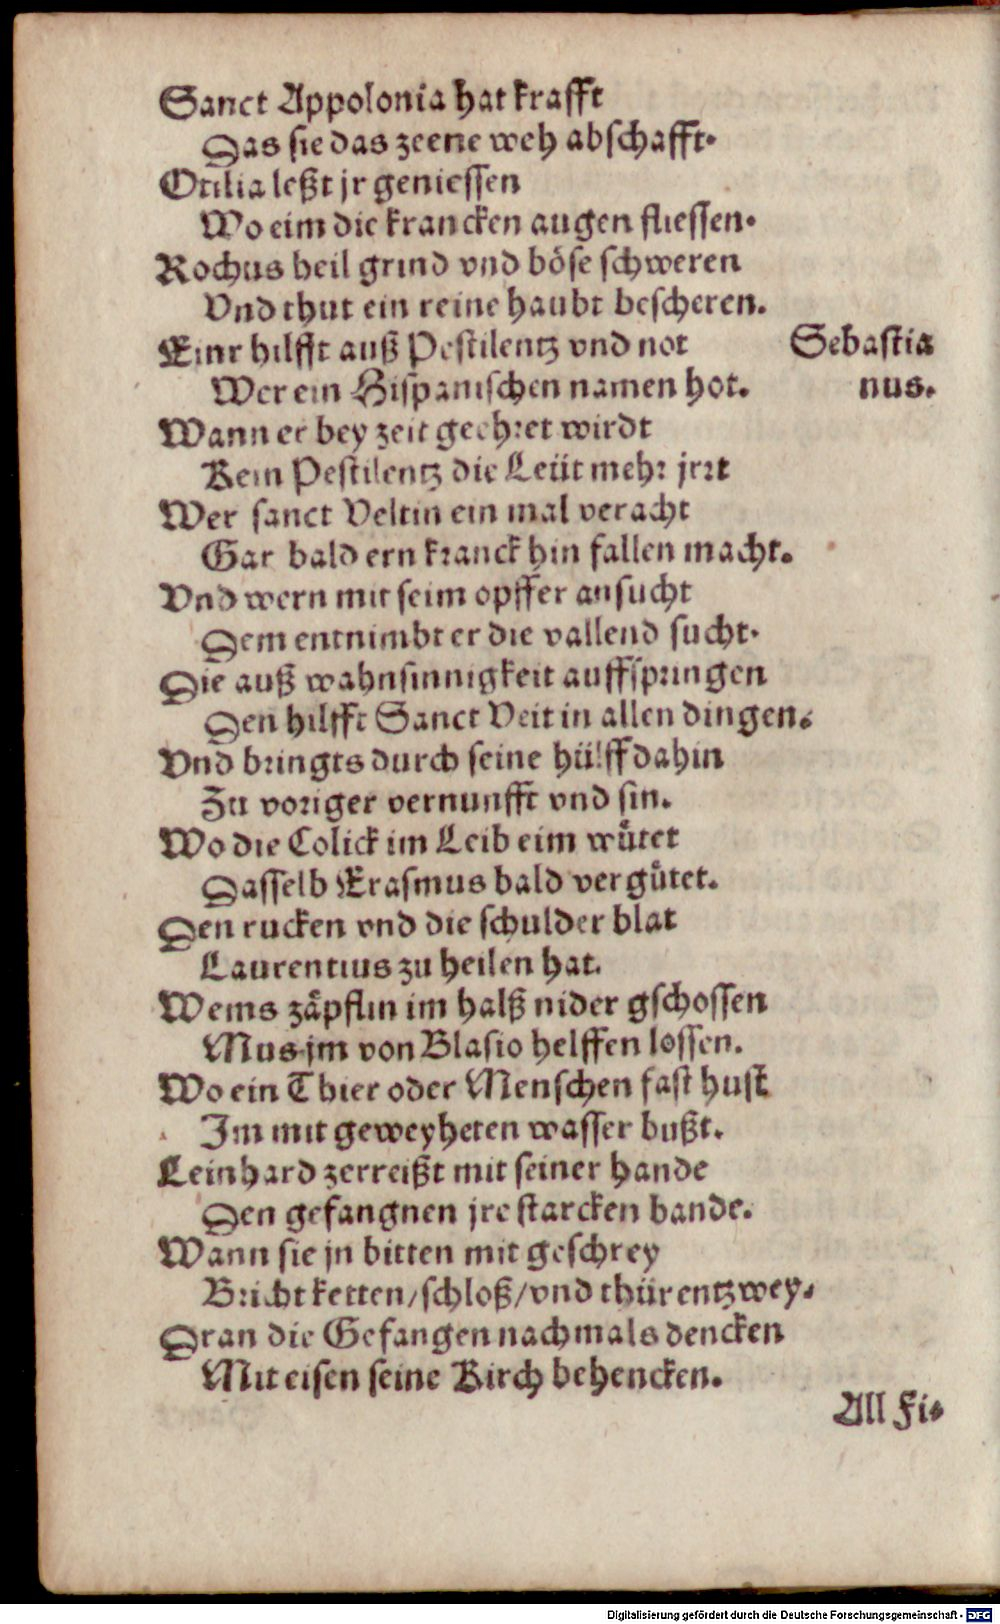 Sanct Appolonia hat krafft
Das sie das zeene weh abschafft.
Otilia leßt jr geniessen
Wo eim die krancken augen fliessen.
Rochus heil grind vnd böse schweren
Vnd thut ein reine haubt bescheren.
Einr hilfft auß Pestilentz vnd not Sebastia
Wer ein Hispanischen namen hot. nus.
Wann er bey zeit geehret wirdt
Kein Pestilentz die Leüt mehr jrrt
Wer sanct Veltin ein mal veracht
Gar bald ern kranck hin fallen macht.
Vnd wern mit seim opffer ansucht
Dem entnimbt er die vallend sucht.
Die auß wahnsinnigkeit auffspringen
Den hilfft Sanct Veit in allen dingen.
Vnd bringts durch seine hülff dahin
Zu voriger vernunfft vnd sin.
Wo die Colick im Leib eim wůtet
Dasselb Erasmus bald vergůtet.
Den rucken vnd die schulder blat
Laurentius zu heilen hat.
Wems zäpflin im halß nider gschossen
Mus jm von Blasio helffen lossen.
Wo ein Thier oder Menschen fast hust
Im mit geweyheten wasser bußt.
Leinhard zerreißt mit seiner hande
Den gefangnen jre starcken bande.
Wann sie jn bitten mit geschrey
Bricht ketten/schloß/vnd thür entzwey.
Dran die Gefangen nachmals dencken
Mit eisen seine Kirch behencken.
All Fi-
Digitalisierung gefördert durch die Deutsche Forschungsgemeinschaft - DFG